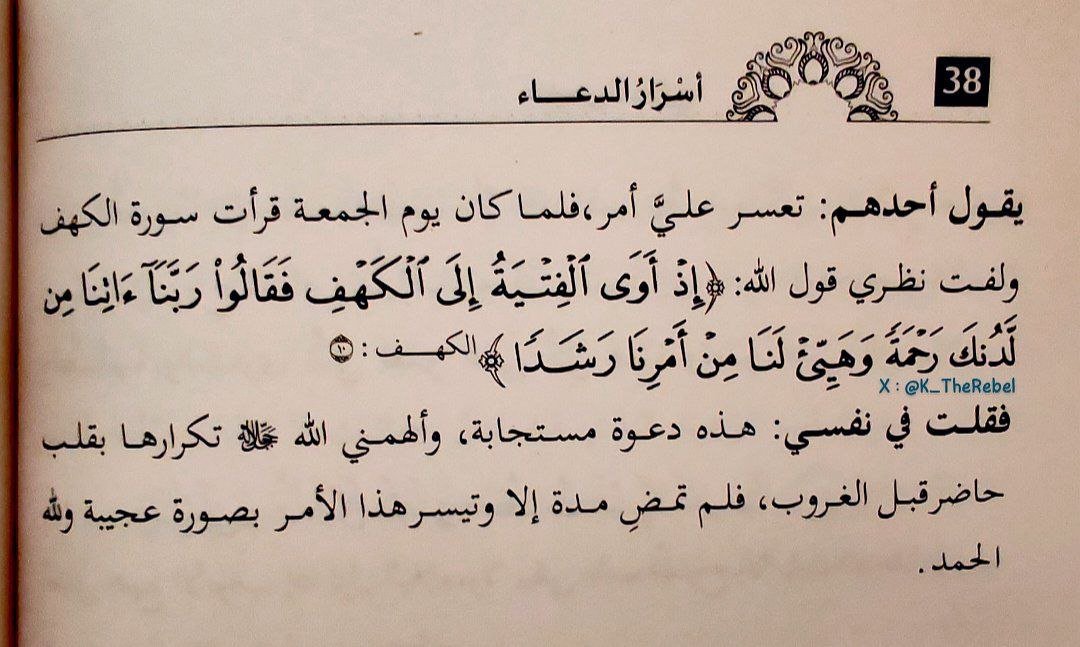 38
أسْرَارُ الدعـــاء
يقـول أحدهـم: تعسـر علـيَّ أمر،فلمـا كان يوم الجمعـة قرأت سـورة الكهف
ولفـت نظـري قول الله: ﴿إِذۡ أَوَى ٱلۡفِتۡيَةُ إِلَى ٱلۡكَهۡفِ فَقَالُواْ رَبَّنَآ ءَاتِنَا مِن
لَّدُنكَ رَحۡمَةٗ وَهَيِّئۡ لَنَا مِنۡ أَمۡرِنَا رَشَدٗا﴾ الكهـــف : ١٠
X : @K_TheRebel
فقلـت في نفسـي: هـذه دعـوة مسـتجابة، وألهمـني الله ﷻ تكرارهـا بقلـب
حاضرقبـل الغـروب، فلـم تمـضِ مـدة إلا وتيسـرهذا الأمـر بصـورة عجيبـة ولله
الحمد.